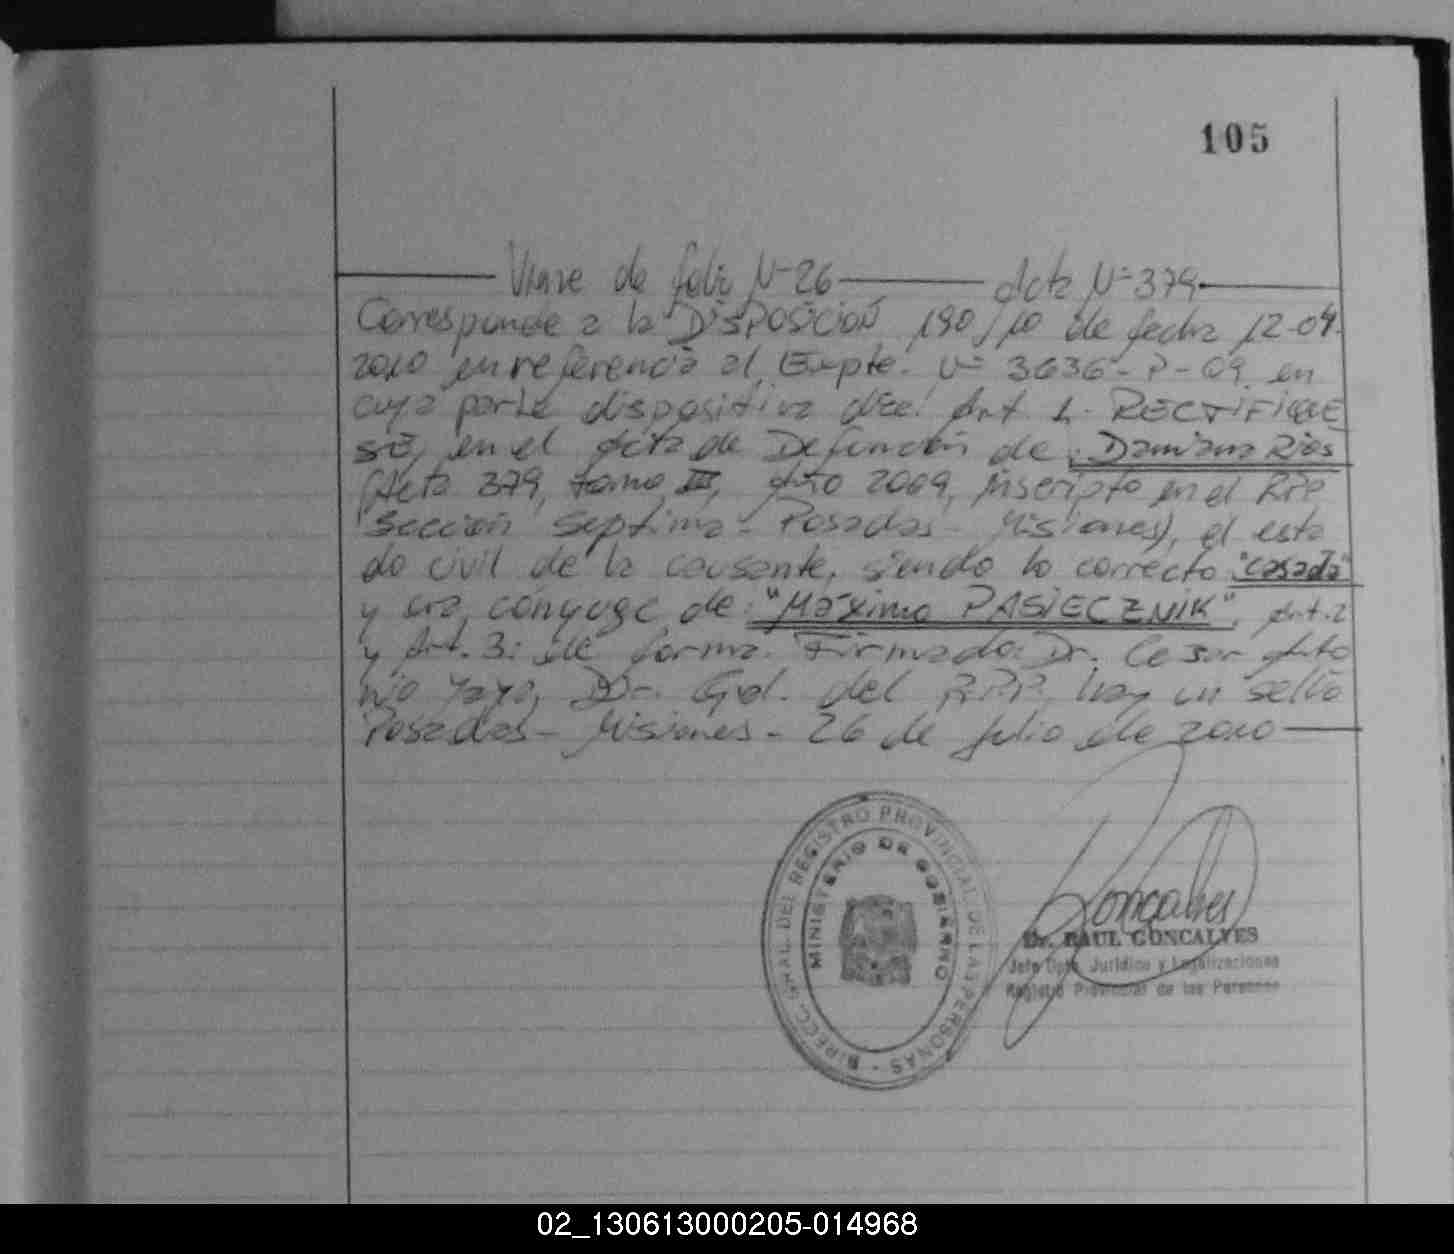 105
Viene de folio Nº 26 Acta Nº 379
Corresponde a la DISPOSICIÓN 190/10 de fecha 12-04-
2010 en referencia al Expte. Nº 3636-P-09, en
cuya parte dispositiva dice: Art 1. RECTIFIQUE
SE, en el acta de Defunción de: Damiana Rios
(Acta 379, tomo III, Año 2009, inscripto en el RPP
Sección Septima - Posadas - Misiones), el esta
do civil de la causante, siendo lo correcto: "casada"
y era cónyuge de: "Máximo PASIECZNIK", Art. 2
y Art. 3: de forma. Firmado: Dr. Cesar Anto
nio Yaya, Dir. Gral. del R.P.P. hay un sello
Posadas - Misiones - 26 de Julio de 2010
DIREC. GRAL. DEL REGISTRO PROVINCIAL DE LAS PERSONAS
MINISTERIO DE GOBIERNO
Goncalves
Dr. RAUL GONCALVES
Jefe Dpto. Jurídico y Legalizaciones
Registro Provincial de las Personas
02_130613000205-014968